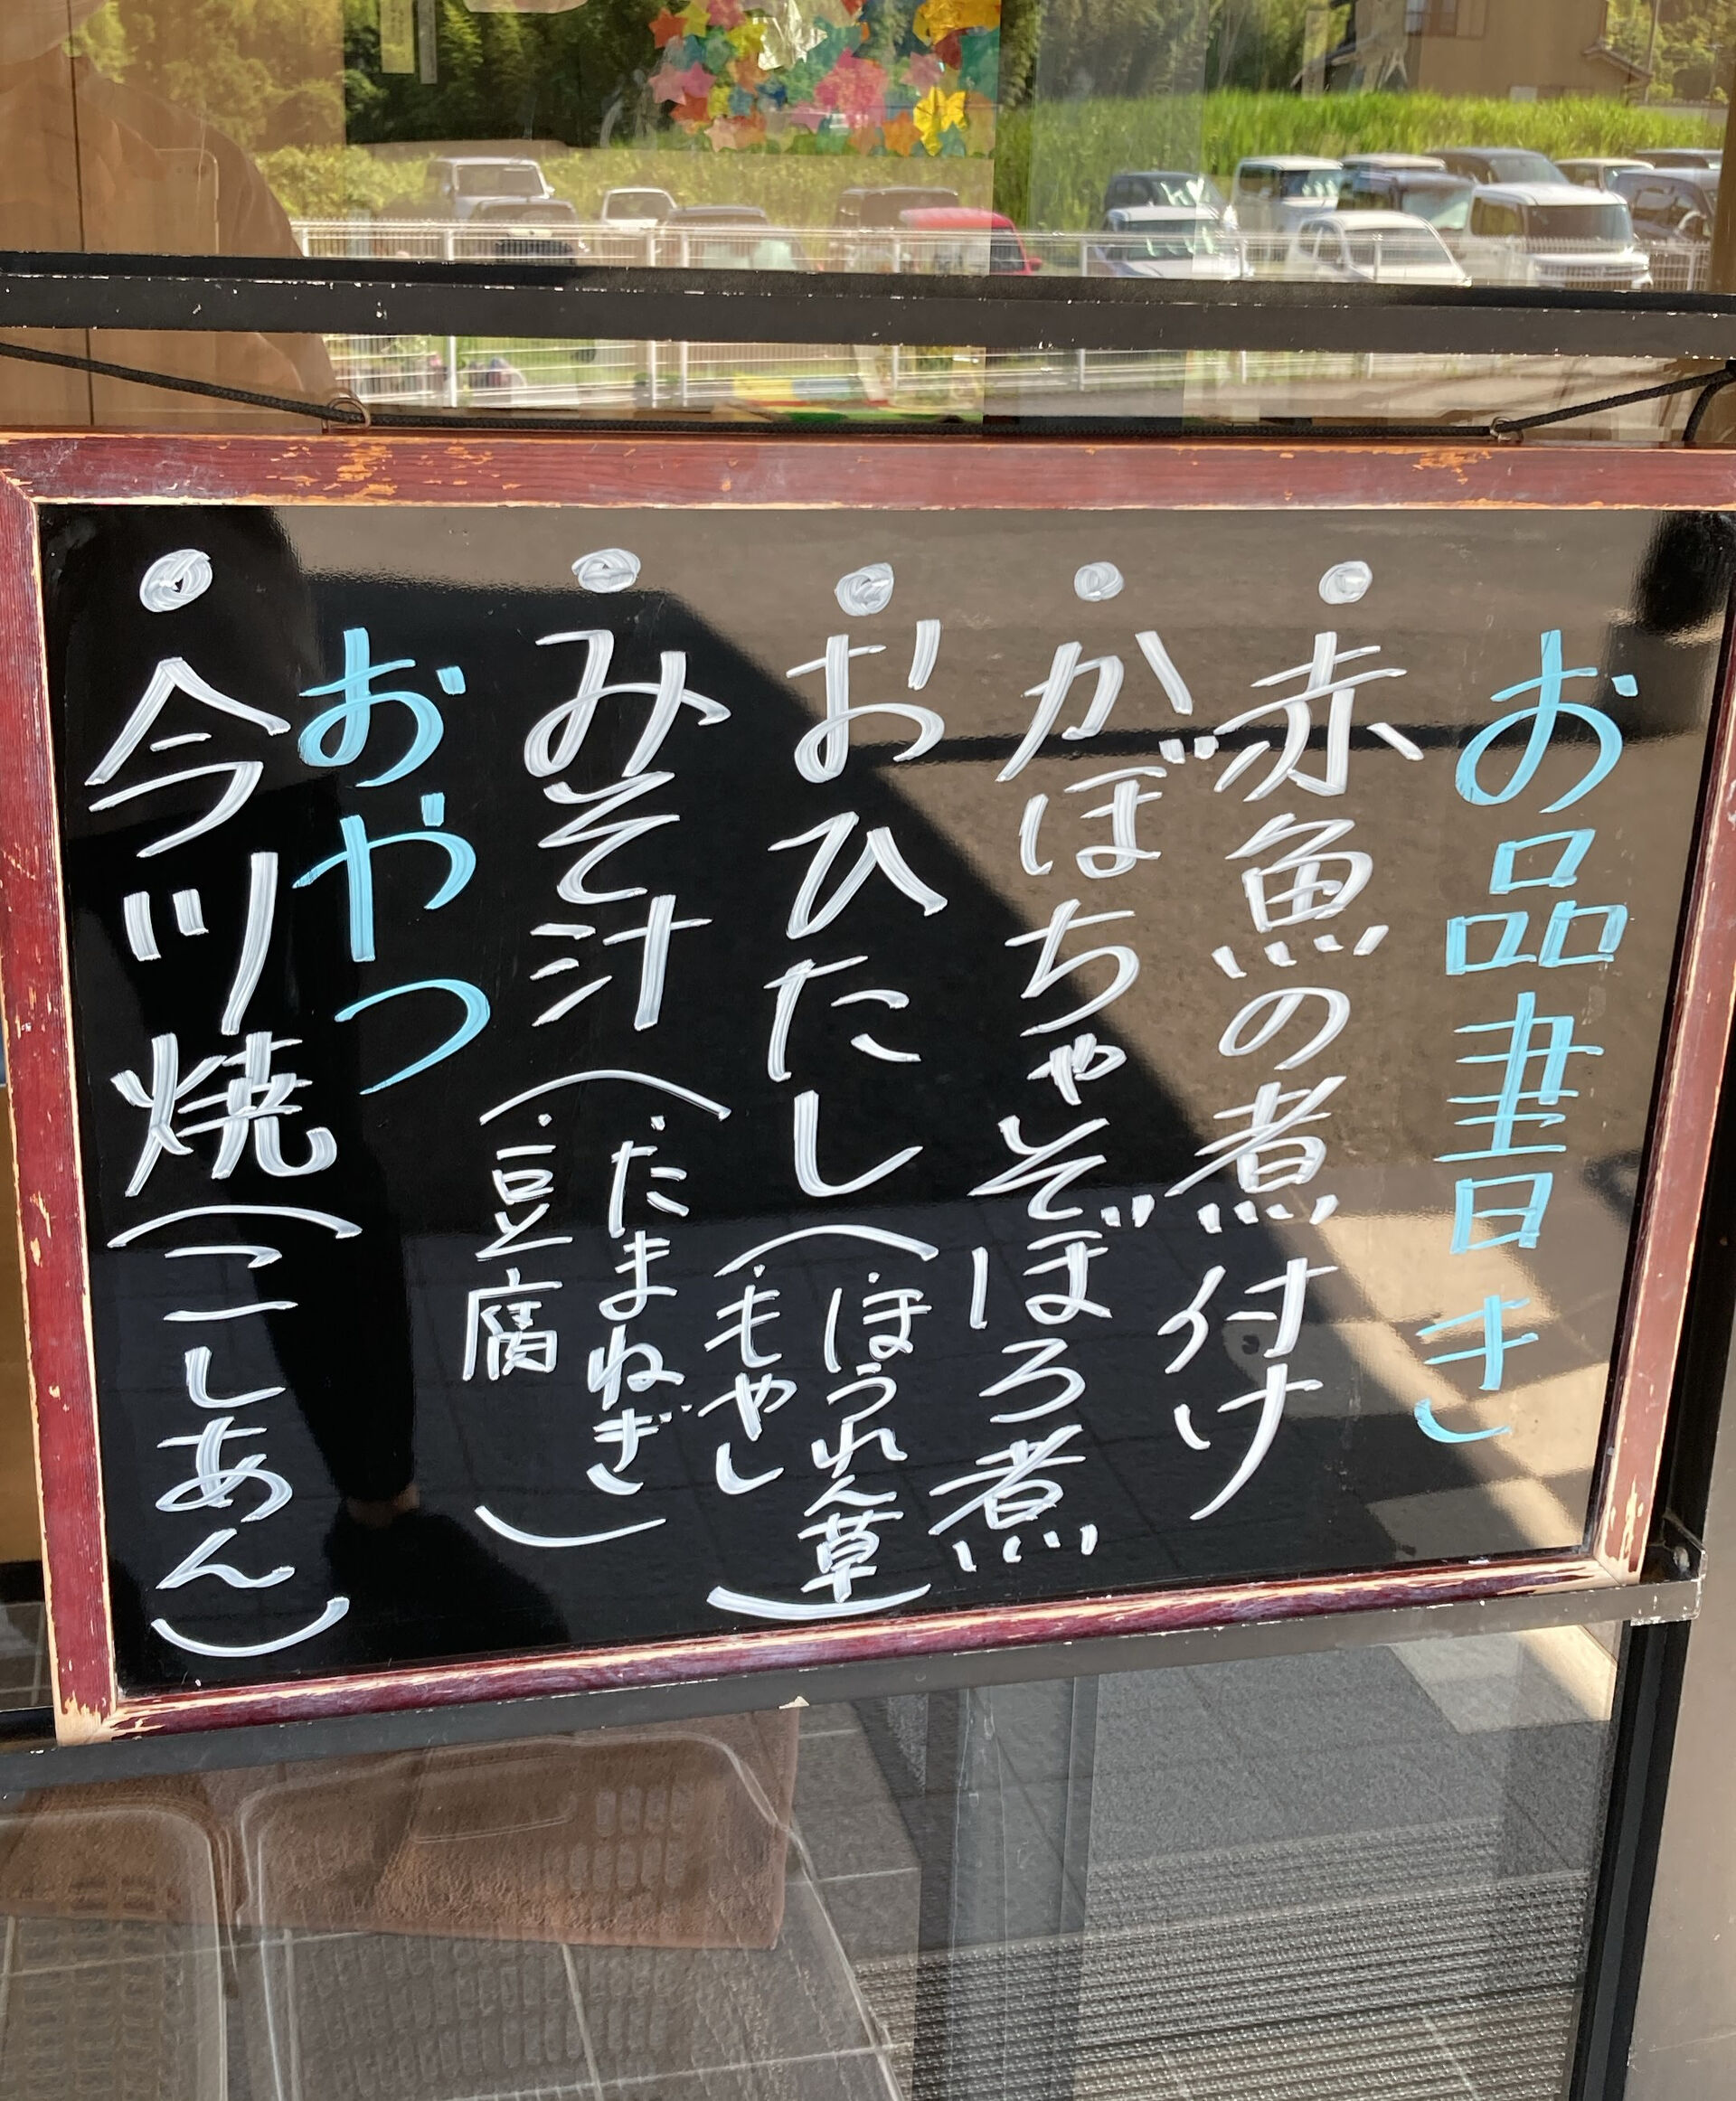 お品書き
・赤魚の煮付け
・かぼちゃそぼろ煮
・おひたし(・ほうれん草
・もやし)
・みそ汁(・たまねぎ
・豆腐)
おやつ
・今川焼(こしあん)